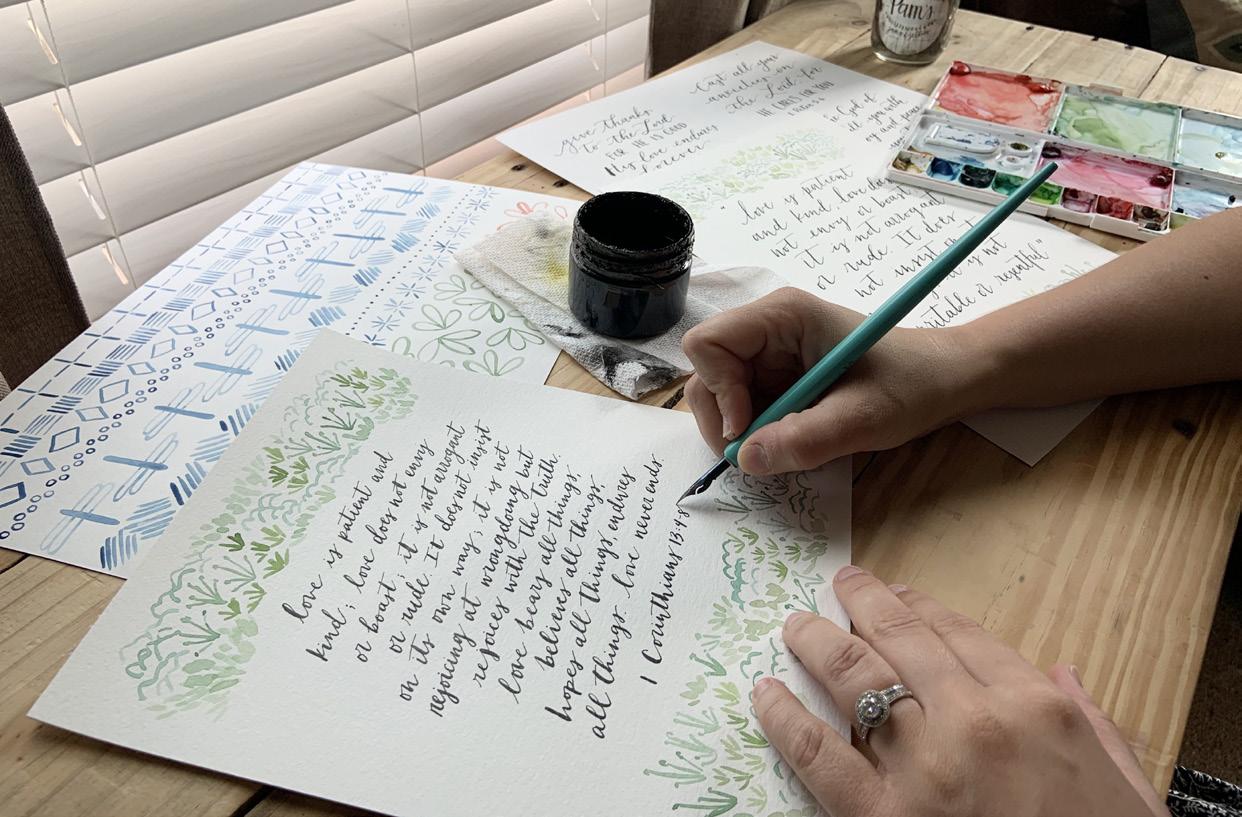 love is patient and
kind; love does not envy
or boast; it is not arrogant
or rude. It does not insist
on its own way; it is not
rejoicing at wrongdoing but
rejoices with the truth.
love bears all things,
believes all things,
hopes all things, endures
all things. love never ends.
1 Corinthians 13:4-8
give thanks
to the Lord
FOR HE IS GOOD
His love endures
forever
Cast all your
anxieties on
the Lord, for
HE CARES FOR YOU
God of
you with
and peace
"love is patient
and kind, love does
not envy or boast
it is not arrogant
or rude. It does
not insist
is not
irritable or resentful"
Pam's